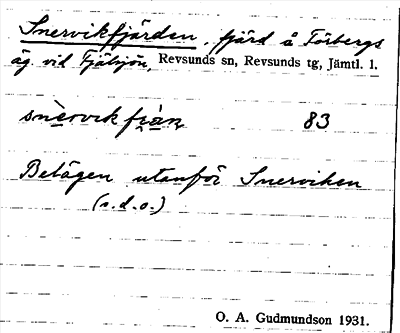 Snervikfjärden, fjärd å Torbergs
äg. vid Fjälsjön, Revsunds sn, Revsunds tg, Jämtl. l.
snèrvikfjàn 83
Belägen utanför Snerviken
(s.d.o.)
O. A. Gudmundson 1931.